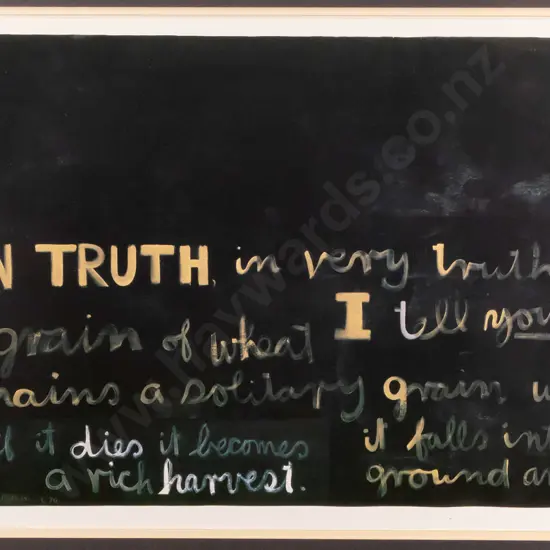 N TRUTH, in very truth
I tell you
grain of wheat
mains a solitary grain u
f it dies it becomes
it falls int
a rich harvest.
ground an
www.haywards.co.nz